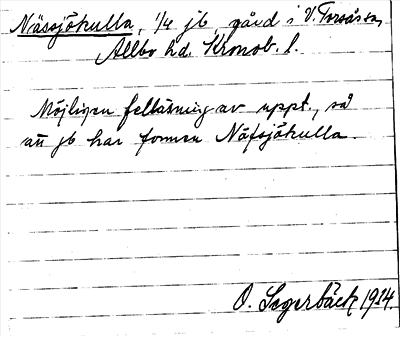 Nässjökulla, 1/4 jb gård i V. Torsås sn,
Allbo hd. Kronob. l.
Möjligen felläsning av uppt., så
att jb har formen Näfsjökulla.
O. Segerbäck 1914.